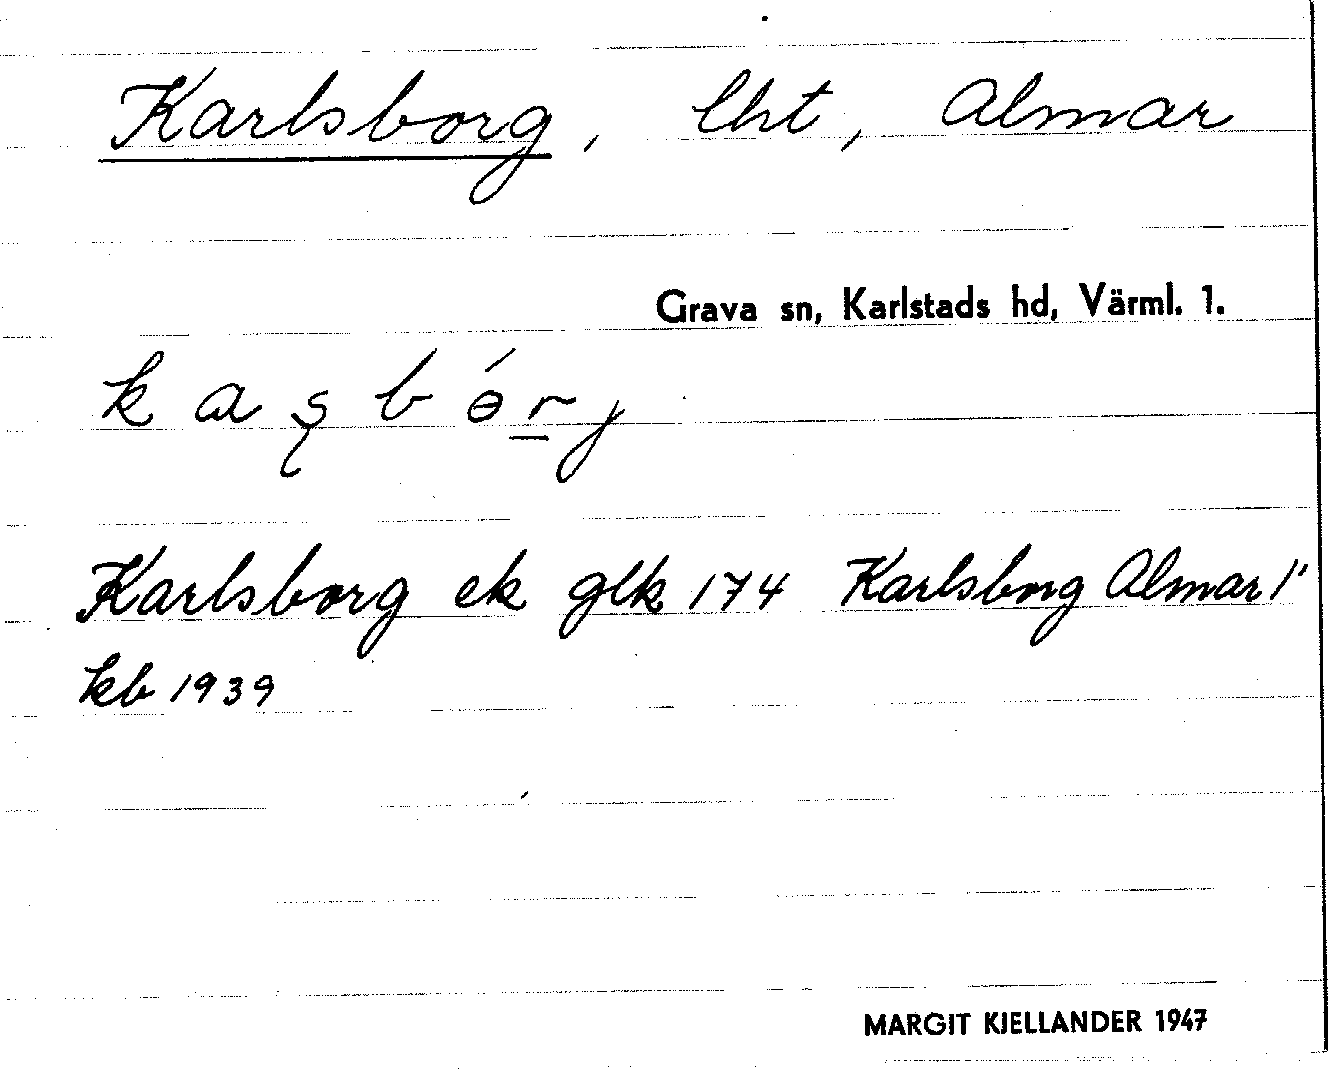 Karlsborg, lht, Almar
Grava sn, Karlstads hd, Värml. 1.
k a ʂ b ɵ́ r̲ j
Karlsborg ek glk 174 Karlsborg Almar 1"
kb 1939
MARGIT KJELLANDER 1947